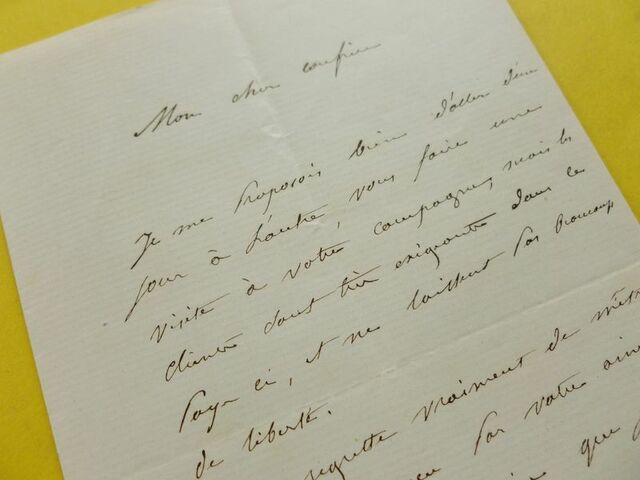 Mon cher confrère
Je me proposois bien d'aller d'un
jour à l'autre, vous faire une
visite à votre campagne, mais les
clients sont très exigeants dans ce
Pays ci, et ne laissent pas beaucoup
de liberté.
regrette vraiment de m'être
par votre
que